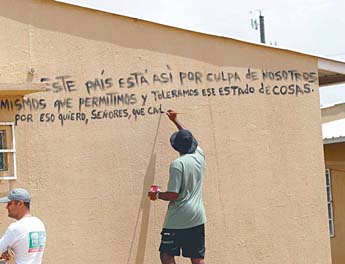 ESTE PAÍS ESTÁ ASÍ POR CULPA DE NOSOTROS
MISMOS QUE PERMITIMOS Y TOLERAMOS ESE ESTADO DE COSAS.
POR ESO QUIERO, SEÑORES, QUE CAL